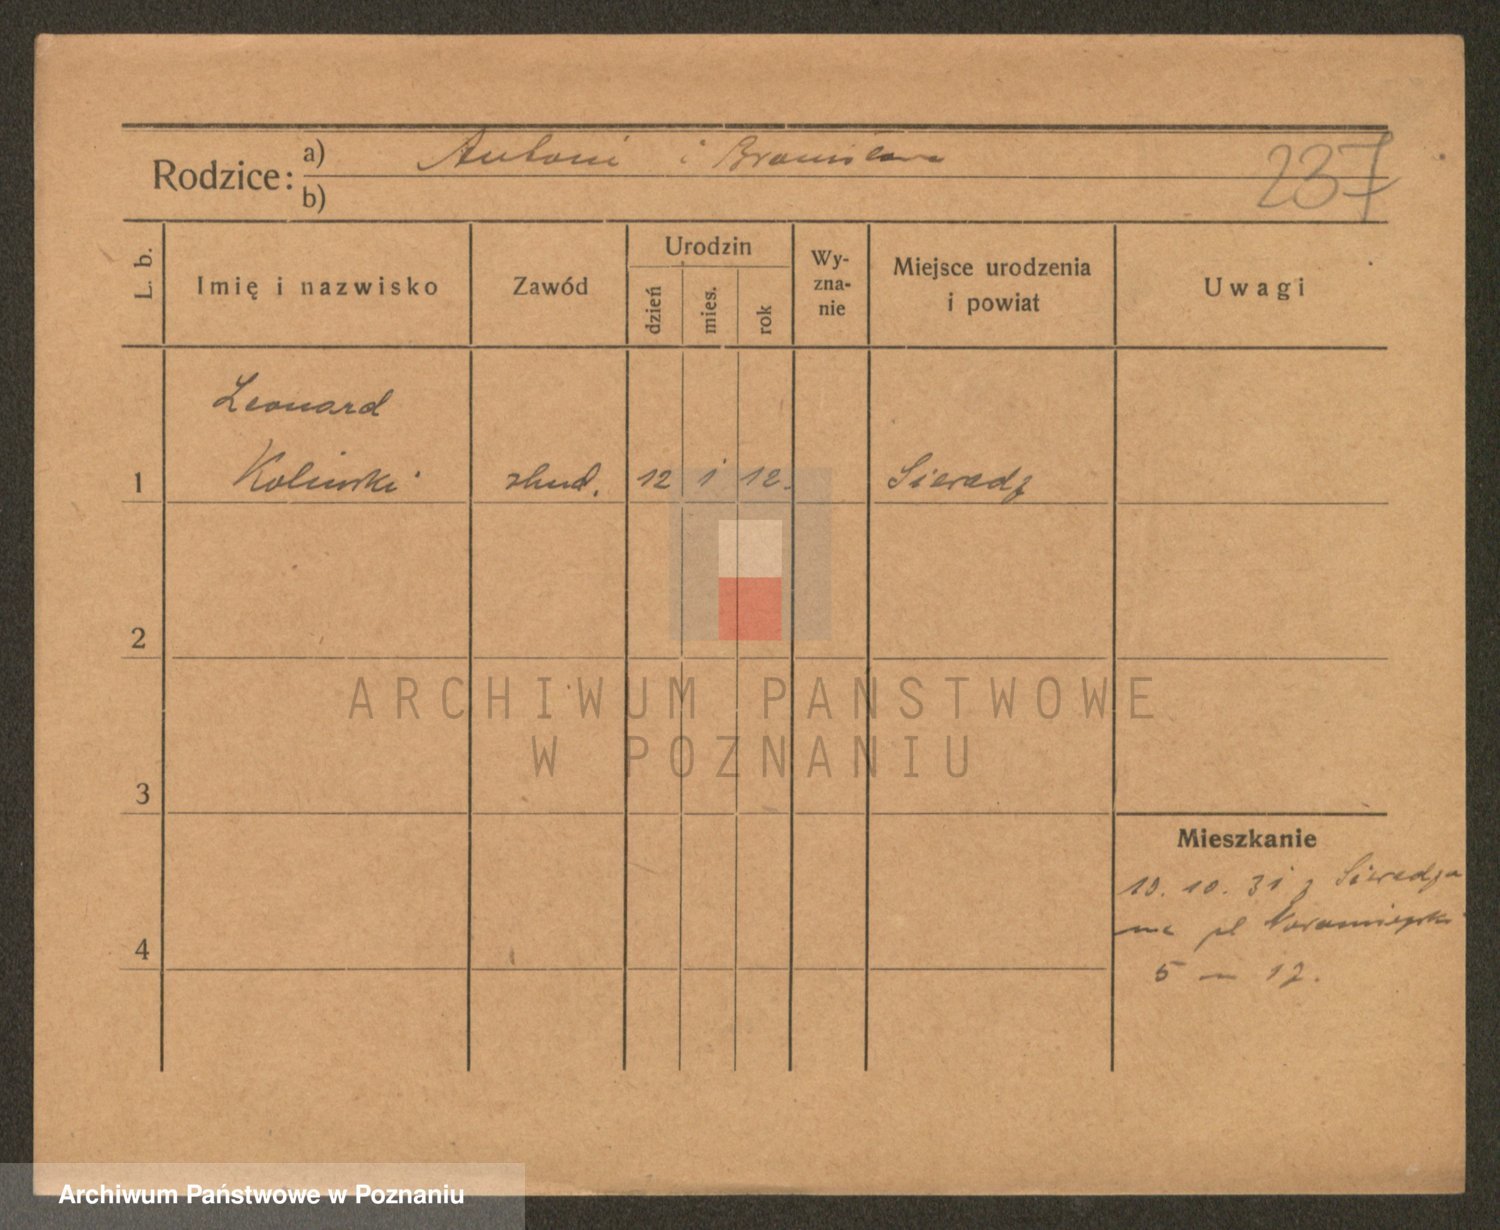 Rodzice:
a) Antoni i Bronisława
b)
237
L. b.
Imię i nazwisko
Zawód
Urodzin
dzień
mies.
rok
Wy-
zna-
nie
Miejsce urodzenia
i powiat
Uwagi
Leonard
1 Koliński stud. 12 1 12. Sieradz
2
ARCHIWUM PAŃSTWOWE
W POZNANIU
3
Mieszkanie
10. 31 z Sieradza
na pl
4
5 — 17.
Archiwum Państwowe w Poznaniu